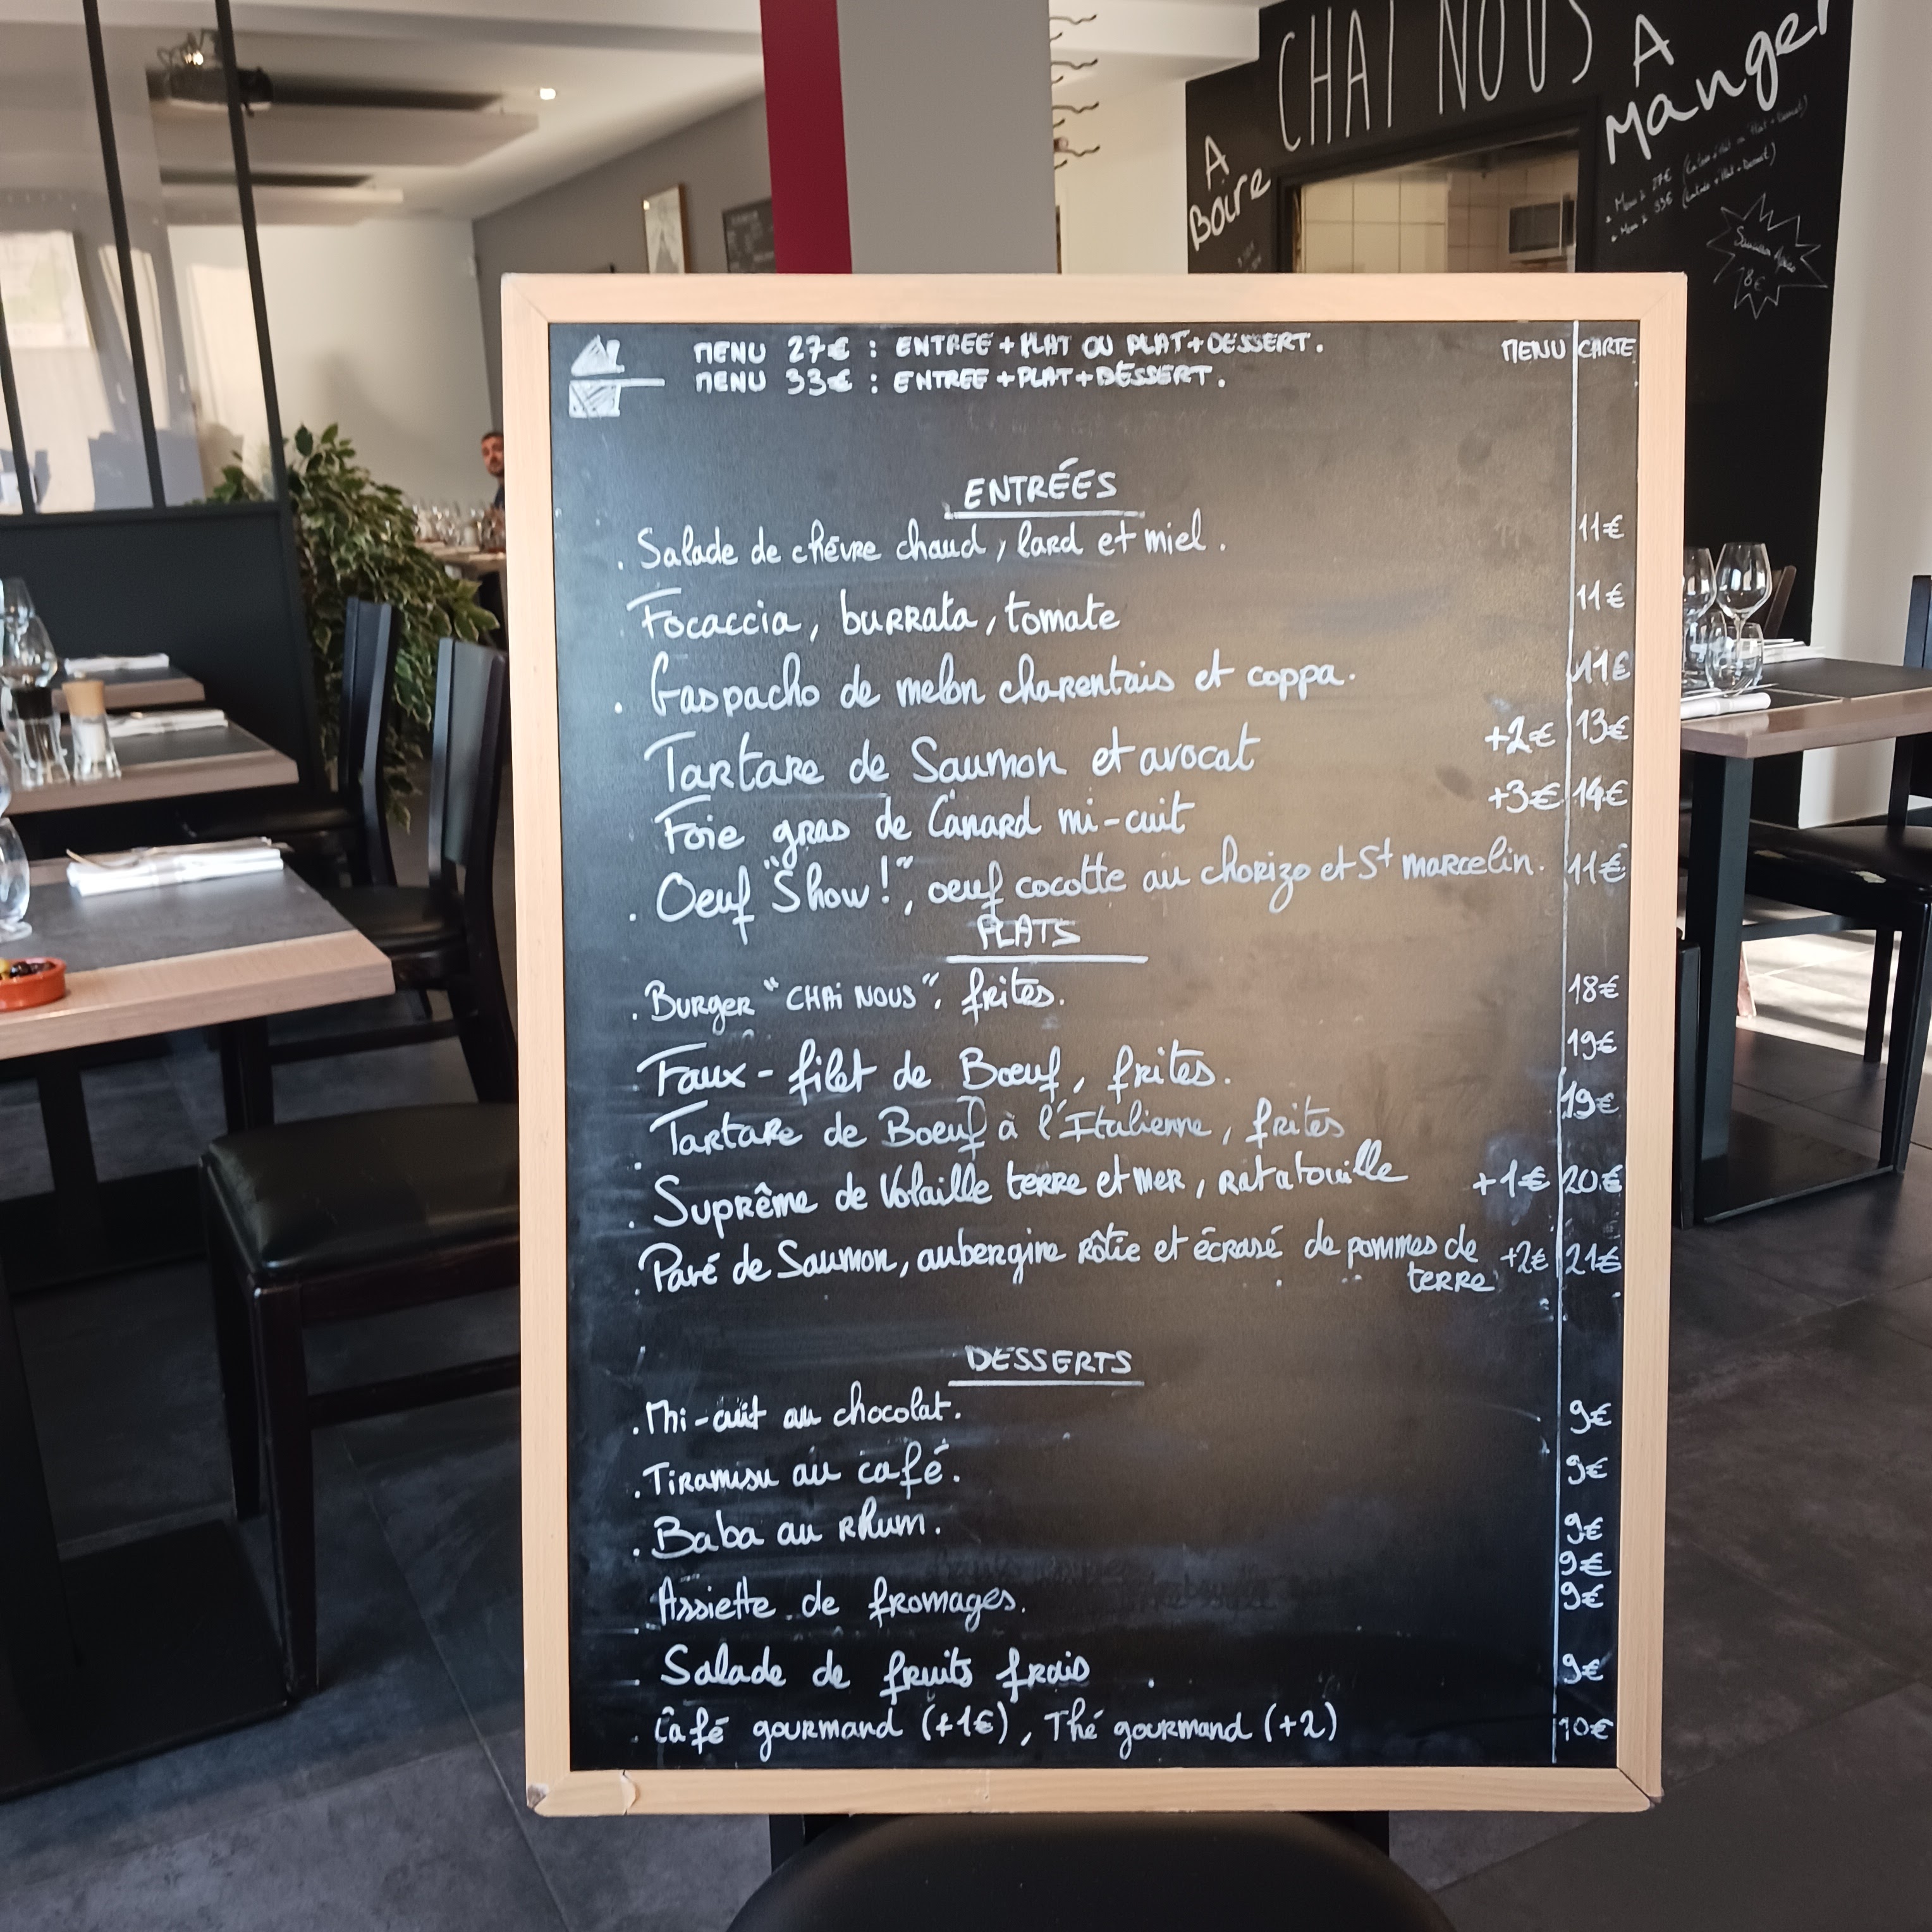 CHAI NOUS
A
Boire
A
Manger
. Menu 2 27€ (Entrée + Plat ou Plat + Dessert)
. Menu 3 33€ (Entrée + Plat + Dessert)
8€
MENU 27€ : ENTREE + PLAT OU PLAT + DESSERT.
MENU 33€ : ENTREE + PLAT + DESSERT.
MENU CARTE
ENTRÉES
. Salade de chévre chaud, lard et miel. 11€
Focaccia, burrata, tomate 11€
. Gaspacho de melon charentais et coppa. 11€
Tartare de Saumon et avocat +2€ 13€
Foie gras de Canard mi-cuit +3€ 14€
. Oeuf "Show!", oeuf cocotte au chorizo et St marcelin. 11€
PLATS
. Burger "CHAi NOUS", frites. 18€
. Faux-filet de Bœuf, frites. 19€
. Tartare de Boeuf à l'Italienne, frites 19€
. Suprême de Volaille terre et mer, ratatouille +1€ 20€
. Pavé de Saumon, aubergine rôtie et écrasé de pommes de +2€ 21€
terre
DESSERTS
. Mi-cuit au chocolat. 9€
. Tiramisu au café. 9€
. Baba au rhum. 9€
9€
Assiette de fromages. 9€
Salade de fruits frais . 9€
. Café gourmand (+1€), Thé gourmand (+2) 10€